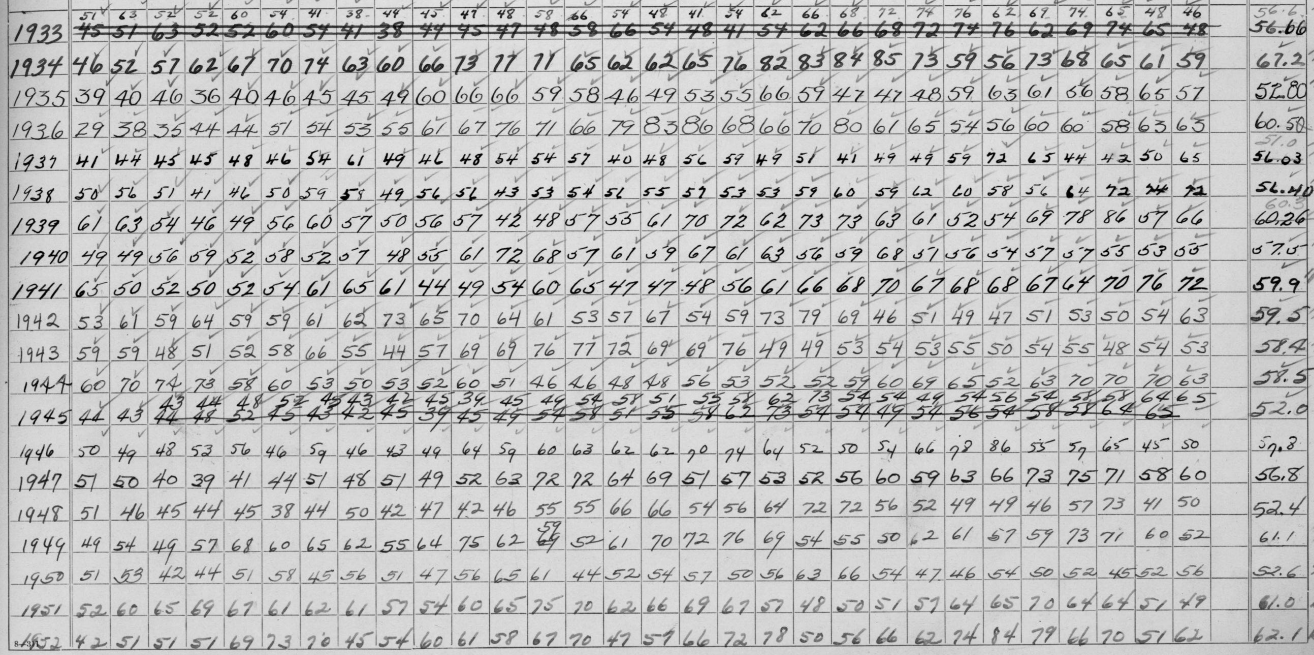 51 63 52 52 60 54 41 38 44 45 47 48 58 66 54 48 41 54 62 66 68 72 74 76 62 69 74 65 48 46 56.6
1933 45 51 63 52 52 60 54 41 38 44 45 47 48 58 66 54 48 41 54 62 66 68 72 74 76 62 69 74 65 48 56.66
1934 46 52 57 62 67 70 74 63 60 66 73 77 71 65 62 62 65 76 82 83 84 85 73 59 56 73 68 65 61 59 67.2
1935 39 40 46 36 40 46 45 45 49 60 66 66 59 58 46 49 53 55 66 59 47 47 48 59 63 61 56 58 65 57 52.80
1936 29 38 35 44 44 51 54 53 55 61 67 76 71 66 79 83 86 68 66 70 80 61 65 54 56 60 60 58 63 63 60.50
51.0
1937 41 44 45 45 48 46 54 61 49 46 48 54 54 57 40 48 56 59 49 51 41 49 49 59 72 65 44 42 50 65 56.03
1938 50 56 51 41 46 50 59 58 49 56 56 43 53 54 56 55 57 53 53 59 60 59 62 60 58 56 64 72 74 72 56.40
60.3
1939 61 63 54 46 49 56 60 57 50 56 57 42 48 57 55 61 70 72 62 73 73 63 61 52 54 69 78 86 57 66 60.26
1940 49 49 56 59 52 58 52 57 48 55 61 72 68 57 61 59 67 61 63 56 59 68 51 56 54 57 57 55 53 55 57.5
1941 65 50 52 50 52 54 61 65 61 44 49 54 60 65 47 47 48 56 61 66 68 70 67 68 68 67 64 70 76 72 59.9
1942 53 61 59 64 59 59 61 62 73 65 70 64 61 53 57 67 54 59 73 79 69 46 51 49 47 51 53 50 54 63 59.5
1943 59 59 48 51 52 58 66 55 44 57 69 69 76 77 72 69 69 76 49 49 53 54 53 55 50 54 55 48 54 53 58.4
1944 60 70 74 73 58 60 53 50 53 52 60 51 46 46 48 48 56 53 52 52 59 60 69 65 52 63 70 70 70 63 58.5
43 44 48 52 45 43 42 45 39 45 49 54 58 51 55 58 62 73 54 54 49 54 56 54 58 58 64 65
1945 44 43 44 48 52 45 43 42 45 39 45 49 54 58 51 55 58 62 73 54 54 49 54 56 54 58 58 64 65 52.0
1946 50 49 48 53 56 46 59 46 43 49 64 59 60 63 62 62 70 74 64 52 50 54 66 78 86 55 57 65 45 50 57.8
1947 51 50 40 39 41 44 51 48 51 49 52 63 72 72 64 69 51 57 53 52 56 60 59 63 66 73 75 71 58 60 56.8
1948 51 46 45 44 45 38 44 50 42 47 42 46 55 55 66 66 54 56 64 72 72 56 52 49 49 46 57 73 41 50 52.4
59
1949 49 54 49 57 68 60 65 62 55 64 75 62 52 61 70 72 76 69 54 55 50 62 61 57 59 73 71 60 52 61.1
1950 51 53 42 44 51 58 45 56 51 47 56 65 61 44 52 54 57 50 56 63 66 54 47 46 54 50 52 45 52 56 52.6
1951 52 60 65 69 67 61 62 61 57 54 60 65 75 70 62 66 69 67 57 48 50 51 57 64 65 70 64 64 51 49 61.0
1952 42 51 51 51 69 73 70 45 54 60 61 58 67 70 47 57 66 72 78 50 56 66 62 74 84 79 66 70 51 62 62.1